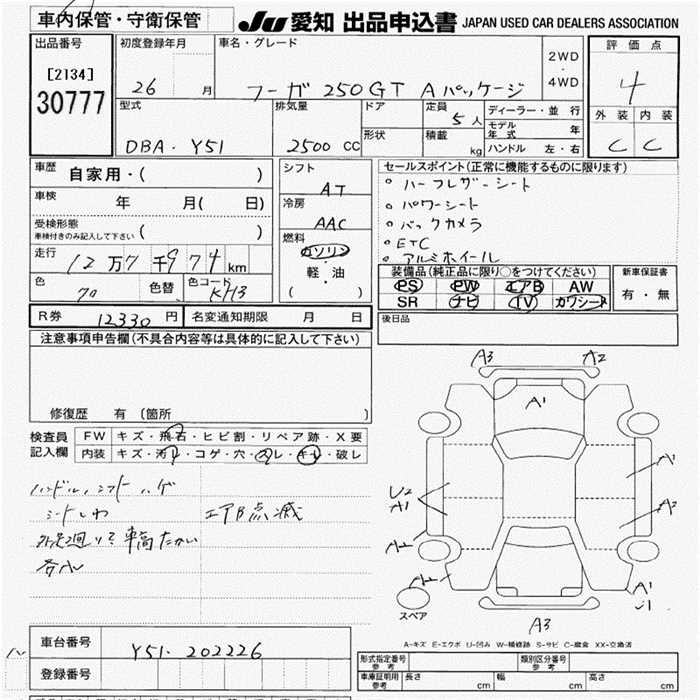 車内保管・守衛保管
JU 愛知 出品申込書 JAPAN USED CAR DEALERS ASSOCIATION
出品番号 初度登録年月 車名・グレード 評価点
[2134] 2WD
・
30777 26 月 フーガ 250GT Aパッケージ 4WD 4
型式 排気量 ドア 定員 5人 ディーラー・並行 外装 内装
モデル年式 年
DBA・Y51 2500 CC 形状 積載 kg ハンドル 左・右 C C
車歴 自家用・( ) シフト AT セールスポイント(正常に機能するものに限ります)
車検 年 月( 日) 冷房 AAC ・ハーフレザーシート
・パワーシート
受検形態 車検付きのみ記入して下さい ( ) 燃料 ・バックカメラ
・ETC
走行 12万7千974km ガソリン ・アルミホイール
軽・油 装備品(純正品に限り○をつけてください) 新車保証書
色 色替 色コード KH3 ( ) PS PW エアB AW 有・無
SR ナビ TV カワシート
R券 12330円 名変通知期限 月 日 後日品
注意事項申告欄(不具合内容等は具体的に記入して下さい)
A3 A2
A1
修復歴 有 (箇所 )
検査員 FW キズ・飛石・ヒビ割・リペア跡・X要
記入欄 内装 キズ・汚レ・コゲ・穴・スレ・キレ・破レ
ハンドル、シフトハゲ
シートしわ エアB点滅
車高たかい
A1
U2
A1
A2
A2
A2
A1
スペア
A3
A-キズ E-エクボ U-凹み W-補修跡 S-サビ C-腐食 XX-交換済
車台番号 Y51-202226
形式指定番号 参考 類別区分番号 参考
登録番号 車庫証明用 参考 長さ cm 幅 cm 高さ cm